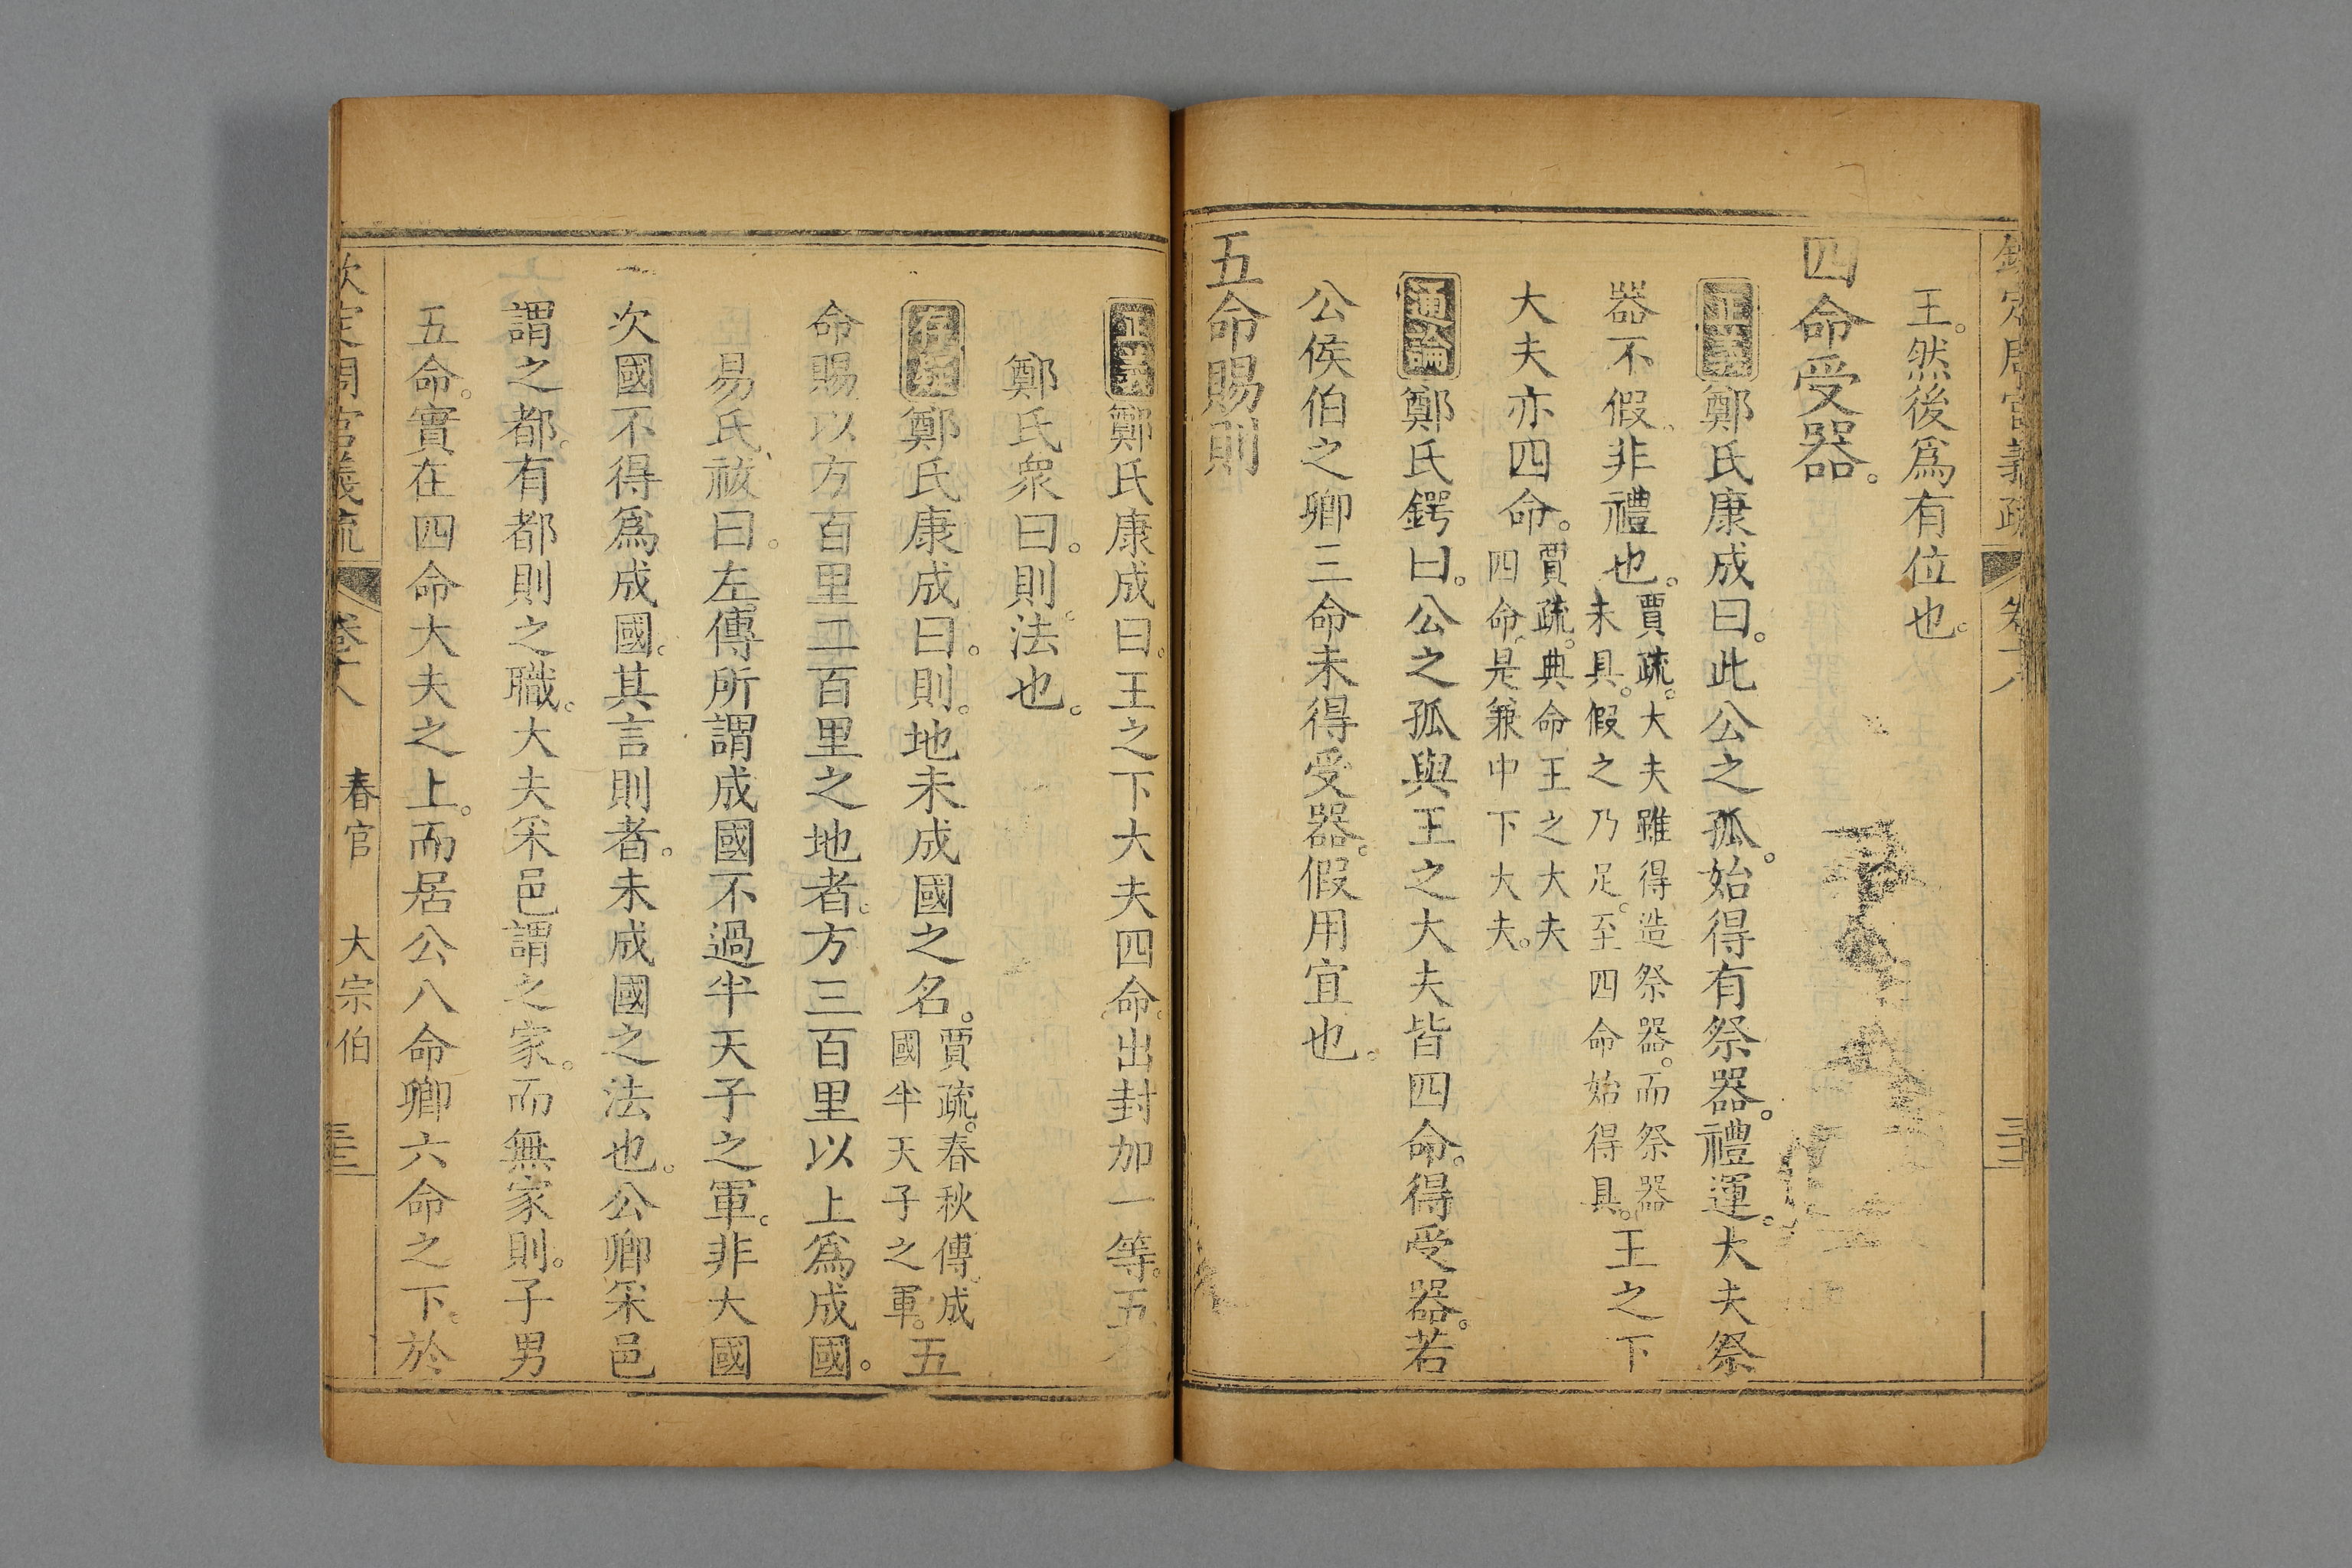 欽定周官義疏 卷十八
王。然後爲有位也。
四命受器。
正義鄭氏康成曰。此公之孤。始得有祭器。禮運。大夫祭
器不假。非禮也。賈疏。大夫雖得造祭器。而祭器
未具。假之乃足。至四命始得具。王之下
大夫亦四命。賈疏。典命王之大夫
四命。是兼中下大夫。
通論鄭氏鍔曰。公之孤與王之大夫皆四命。得受器。若
公侯伯之卿三命未得受器。假用宜也。
五命賜則
正義鄭氏康成曰。王之下大夫四命。出封加一等。五
鄭氏衆曰。則。法也。
存疑鄭氏康成曰。則。地未成國之名。賈疏。春秋傳成
國半天子之軍。五
命賜以方百里二百里之地者。方三百里以上爲成國。
易氏祓曰。左傳所謂成國不過半天子之軍。非大國
次國不得爲成國。其言則者。未成國之法也。公卿采邑
謂之都。有都則之職。大夫采邑謂之家。而無家則。子男
五命。實在四命大夫之上。而居公八命卿六命之下。於
欽定周官義疏 卷十八 春官 大宗伯